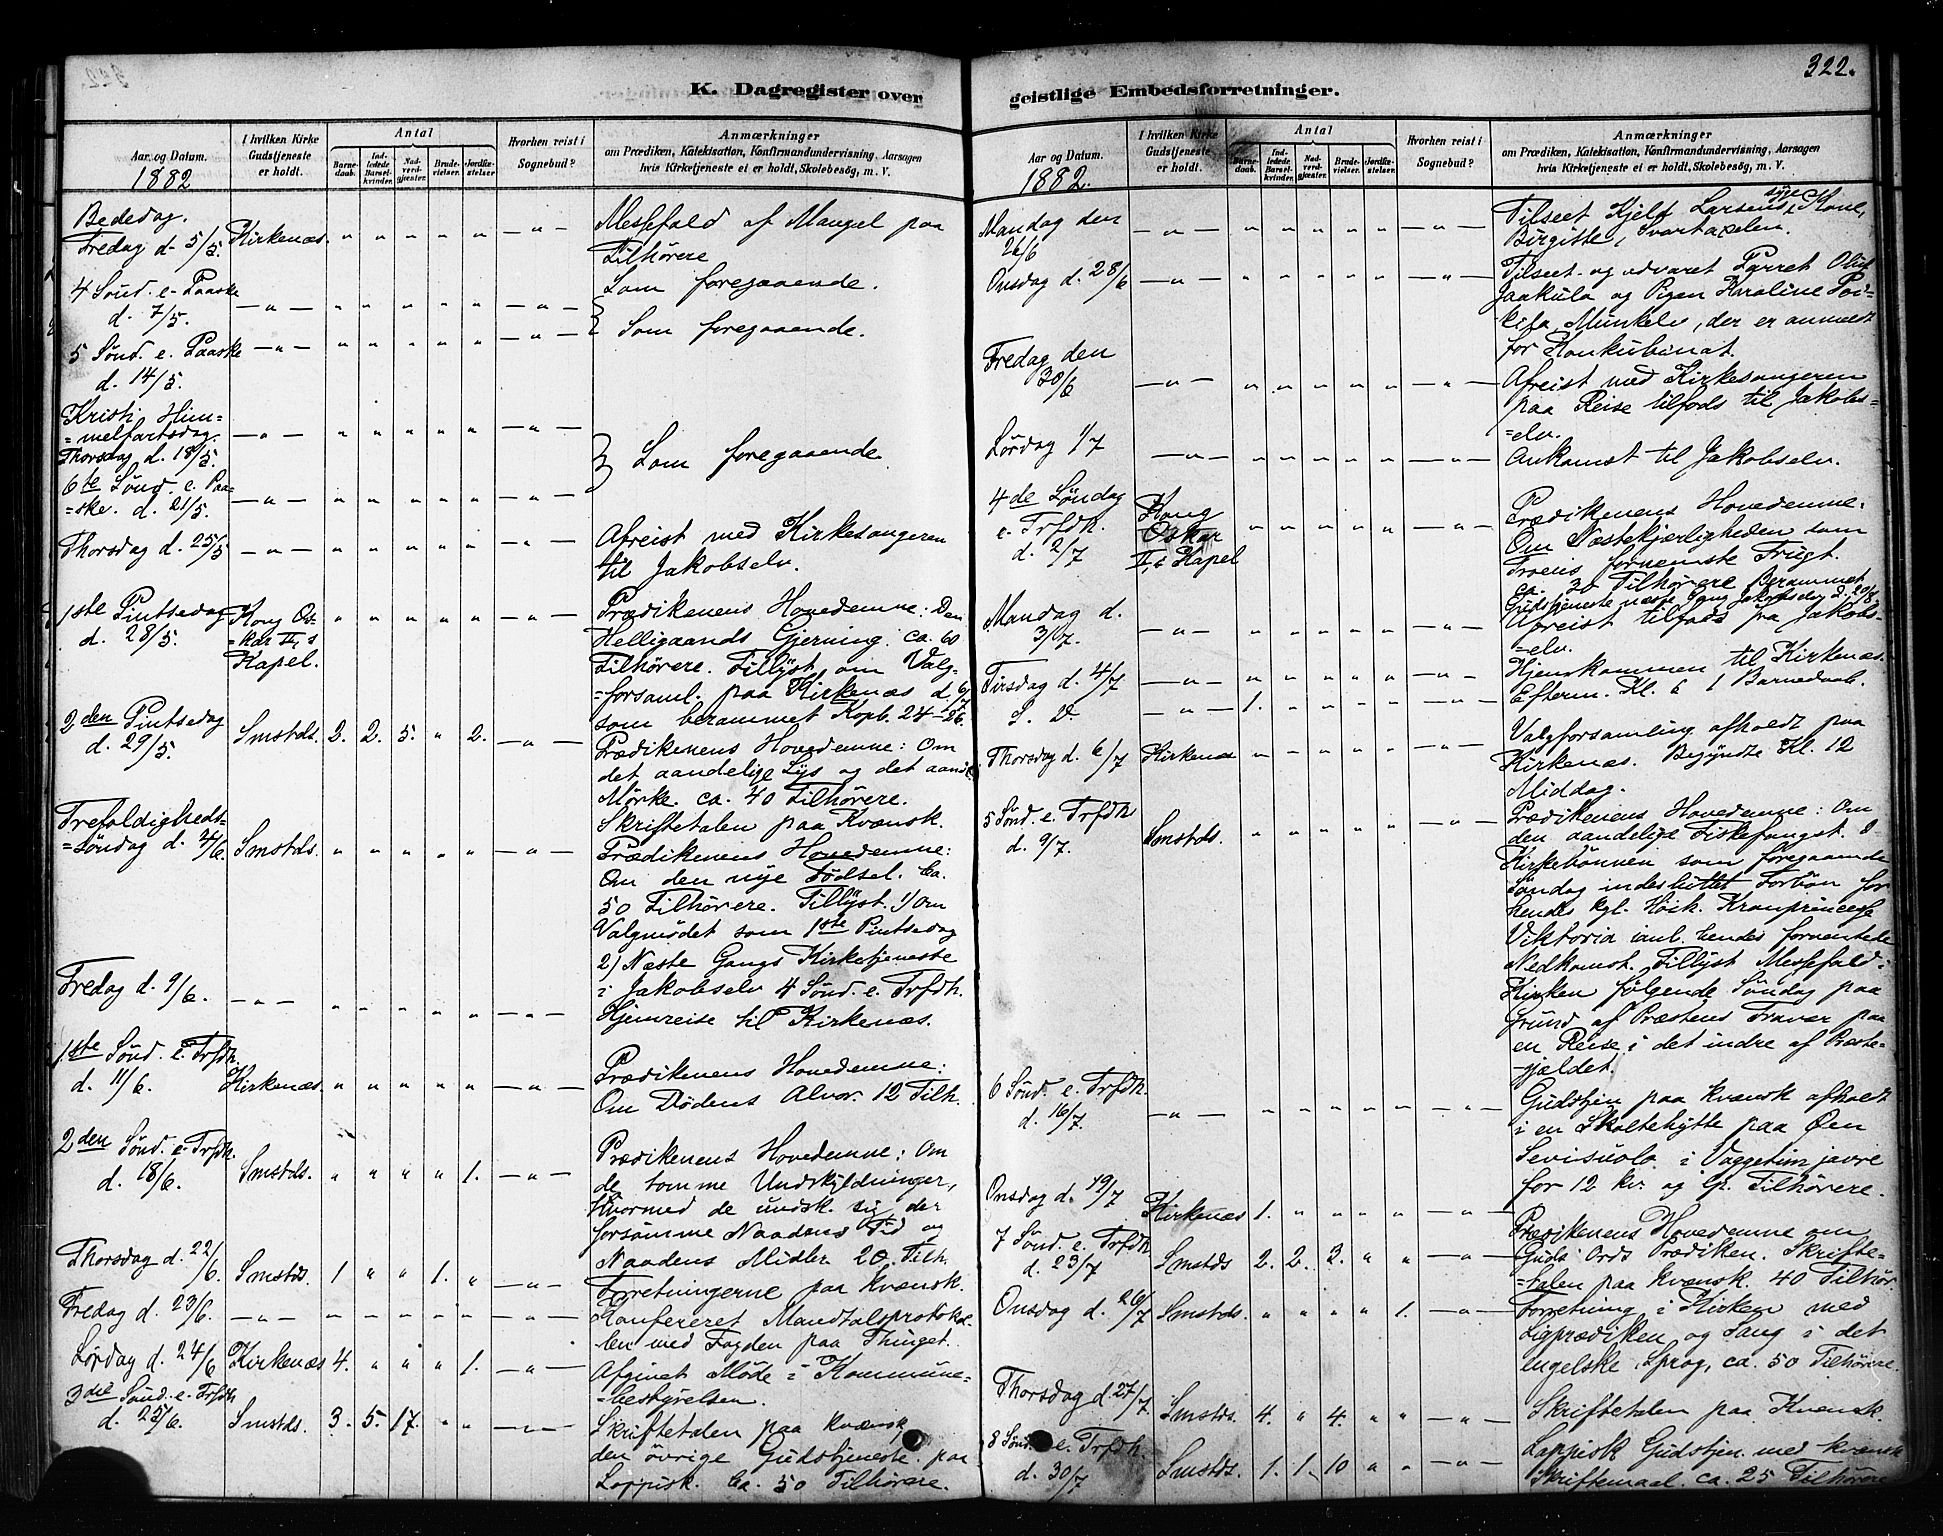 322.
K. Dagregister over
I hvilken Kirke Gudstjeneste er holdt.
Antal
Hvorhen reist i Sognebud?
Anmærkninger
om Prædiken, Katekisation, Konfirmandundervisning, Aarsagen
hvis Kirketjeneste ei er holdt, Skolebesøg, m. V.
Aar og Datum.
Barne-daab.
Ind-ledede Barsel-kvinder.
Nad-verd-gjæster.
Brude-vielser.
Jordfæ-stelser
1882
Bededag.
Fredag d. 5/5. Kirkenæs. " " " " " — " — Messefald af Mangel paa
Tilhørere
4 Sønd. e. Paaske
d. 7/5. — " — " " " " " — " — Som foregaaende.
5 Sønd. e. Paaske
d. 14/5. — " — " " " " " — " — Som foregaaende.
Kristi Him=
=melfartsdag.
Thorsdag d. 18/5. — " — " " " " " — " —
Som foregaaende
6te Sønd. e. Paa=
=ske. d. 21/5. — " — " " " " " — " —
Thorsdag d. 25/5 — " — " " " " " — " — Afreist med Kirkesangeren
til Jakobselv.
1ste Pintsedag
d. 28/5. Kong Os=
=kar II,s
Kapel. " " " " " — " — Prædikenens Hovedemne: Den
Helligaands Gjerning. ca. 60
Tilhørere. Tillyst om Valg=
=forsaml. paa Kirkenæs d. 6/7
som berammet Kopb. 24–26.
2den Pintsedag
d. 29/5. Smstds. 2. 2. 5. " 2. — " — Prædikenens Hovedemne: Om
det aandelige Lys og det aand.
Mørke. ca. 40 Tilhørere.
Skriftetalen paa Kvænsk.
Trefoldigheds=
=Søndag d. 4/6. Smstds. " " " " " — " — Prædikenens Hovedemne:
Om den nye Fødsel. Ca.
50 Tilhørere. Tillyst. 1) Om
Valgmødet som 1ste Pintsedag
2) Næste Gangs Kirketjeneste
i Jakobselv 4 Sønd. e. Trfdh.
Fredag d. 9/6. — " — " " " " " — " — Hjemreise til Kirkenæs.
1ste Sønd. e. Trfdh.
d. 11/6. Kirkenæs. " " " " " — " — Prædikenens Hovedemne:
Om Dødens Alvor. 12 Tilh.
2den Sønd. e. Trfdh.
d. 18/6. Smstds. " " " " 1. — " — Prædikenens Hovedemne: Om
de tomme Undskyldninger,
hvormed de undsk. sig, der
forsømme Naadens Tid og
Naadens Midler 20 Tilh.
Thorsdag d. 22/6. Smstds. 1 " " 1. " — " — Forretningerne paa kvænsk.
Fredag d. 23/6. — " — " " " " " — " — Konfereret Mandtalsprotokol=
len med Fogden paa Thinget.
Lørdag d. 24/6 Kirkenæs 4. " " " 1. — " — Afgivet Møde i Kommune=
=bestyrelsen.
3die Sønd. e. Trfdh
d. 25/6. Smstds. 3. 5. 17. " " — " — Skriftetalen paa kvænsk,
den øvrige Gudstjeneste paa
Lappisk. Ca. 50 Tilhørere.
geistlige Embedsforretninger.
Aar og Datum.
I hvilken Kirke Gudstjeneste er holdt.
Antal
Barne-daab.
Ind-ledede Barsel-kvinder.
Nad-verd-gjæster.
Brude-vielser.
Jordfæ-stelser
Hvorhen reist i Sognebud?
Anmærkninger
om Prædiken, Katekisation, Konfirmandundervisning, Aarsagen
hvis Kirketjeneste ei er holdt, Skolebesøg, m. V.
1882.
Mandag den
26/6 — " — " " " " " — " — Tilseet Kjelf Larsens syge Kone,
Birgitte, Svartaxelen.
Onsdag d. 28/6 — " — " " " " " — " — Tilseet og advaret Pyrret Oluf
Jaakula og Pigen Karoline Poi=
kila, Munkelv, der er anmeldt
for Konkubinat.
Fredag den
30/6 — " — " " " " " — " — Afreist med Kirkesangeren
paa Reise tilfods til Jakobs=
=elv.
Lørdag 1/7 — " — " " " " " — " — Ankomst til Jakobselv.
4de Søndag
e. Trfdh.
d. 2/7 Kong
Oskar
II,s Kapel " " " " " — " — Prædikenens Hovedemne:
Om Næstekjærligheden som
Troens fornemste Frugt.
ca. 30 Tilhørere Berammet
Gudstjeneste næste Gang Jakobselv d. 20/8.
Mandag d.
3/7. — " — " " " " " — " — Afreist tilfods fra Jakobs=
=elv.
Tirsdag d. 4/7 — " — " " " " " — " — Hjemkommen til Kirkenæs.
S. D. — " — 1. " " " " — " — Efterm. Kl. 6 1 Barnedaab.
Thorsdag d. 6/7 Kirkenæs " " " " " — " — Valgforsamling afholdt paa
Kirkenæs. Begyndte Kl. 12
Middag.
5 Sønd. e. Trfdh
d. 9/7. Smstds. " " " " " — " — Prædikenens Hovedemne: Om
den aandelige Fiskefangst. I
Kirkebønnen som foregaaende
Søndag indesluttet Forbøn for
hendes kgl. Høih. Kronprincesse
Viktoria i anl. hendes forventede
Nedkomst. Tillyst Messefald i
Kirken følgende Søndag paa
Grund af Præstens Fravær paa
en Reise i det indre af Præste=
=gjældet.
6 Sønd. e. Trfdh.
d. 16/7. — " — " " " " " — " — Gudstjen. paa kvænsk afholdt
i en Skoltehytte paa Øen
Sevisuolo i Vaggetimjavre
for 12 kv. og lp. Tilhørere.
Onsdag d. 19/7 Kirkenæs 1. " " " " — " —
7 Sønd. e. Trfdh.
d. 23/7 Smstds 2. 2. 3. " " — " — Prædikenens Hovedemne om
Guds Ords Prædiken. Skrifte=
=talen paa kvænsk. 40 Tilhør.
Onsdag d. 26/7 Smstds. " " " " 1. — " — Forretning i Kirken med
Ligprædiken og Sang i det
engelske Sprog, ca. 50 Tilhørere.
Thorsdag d. 27/7. Smstds. 4. " 4. " " — " — Skriftetalen paa Kvensk.
8 Sønd. e. Trfdh.
d. 30/7 Smstds. 1. 1. 10 " " — " — Lappisk Gudstjen. med kvænsk
Skriftemaal. ca. 25 Tilhørere